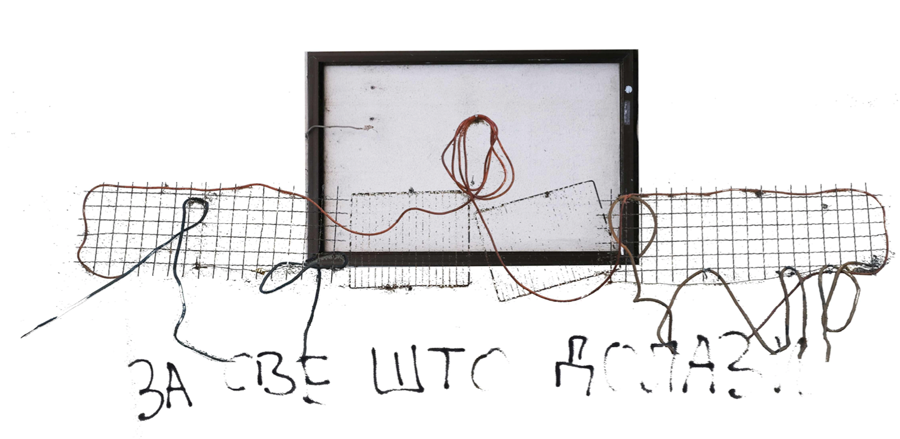 ЗА СВЕ ШТО ДОЛАЗИ